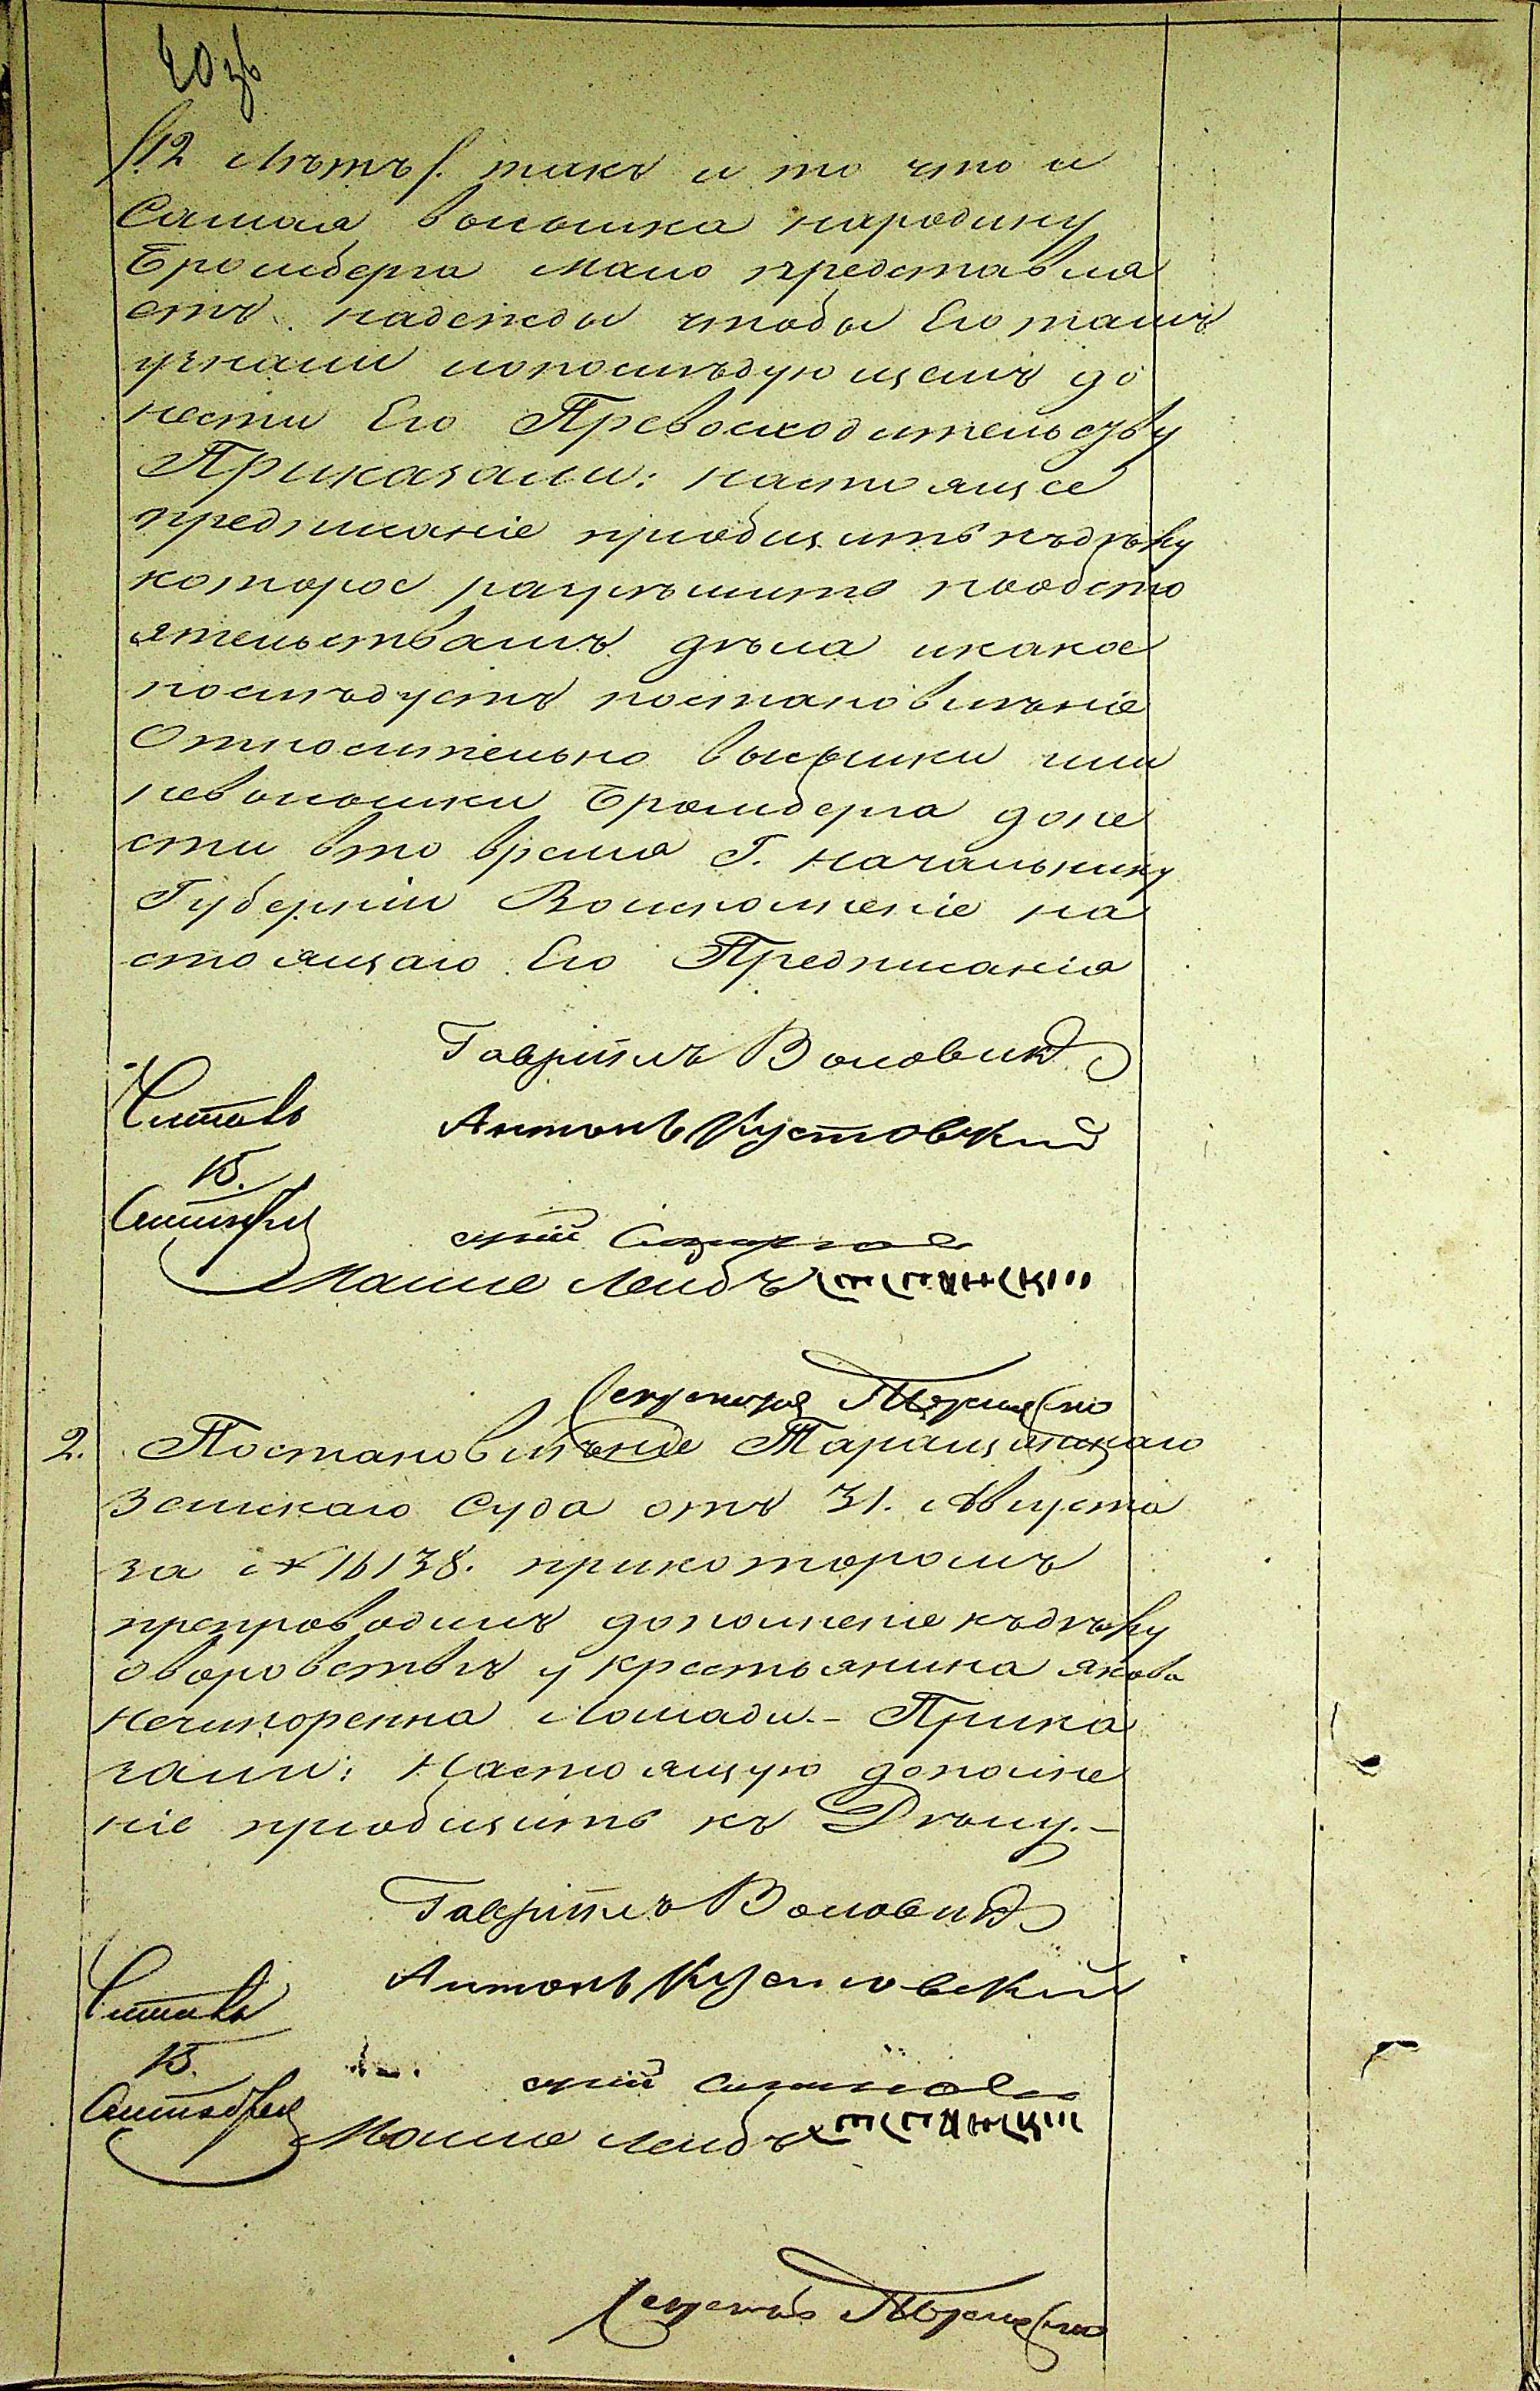 20 зв
/:12 лѣтъ/. такъ и то что и
Самая высылка народину
Бромберга мало представля
етъ надежды чтобы Его тамъ
узнали ипопослѣдующемъ до
нести Его Превосходительству
Приказали: настоящее
предписаніе пріобщить къдѣлу
которое разрѣшить пообсто
ятельствамъ дѣла икакое
послѣдуетъ постановлѣніе
Относительно высылки или
невысылки Бромберга доне
сти вто время Г. Начальнику
Губерніи Воисполненіе на
стоящаго Его Предписанія
Гавріилъ Воловикъ
Читалъ Антонъ Кустовскій
15.
Сентября
Машко Лейбъ
Секретарь
2. Постановлѣніе Таращанскаго
Земскаго Суда отъ 31. Августа
за № 16138. прикоторомъ
препроводилъ дополненіе къдѣлу
оворовствѣ у крестьянина Якова
Нечипоренка Лошади.- Прика
зали: Настоящую дополне
ніе пріобщить къ Дѣлу.-
Гавріилъ Воловикъ
Антонъ Кустовскій
Читалъ
15.
Сентября
Машко Лейбъ
Секретарь